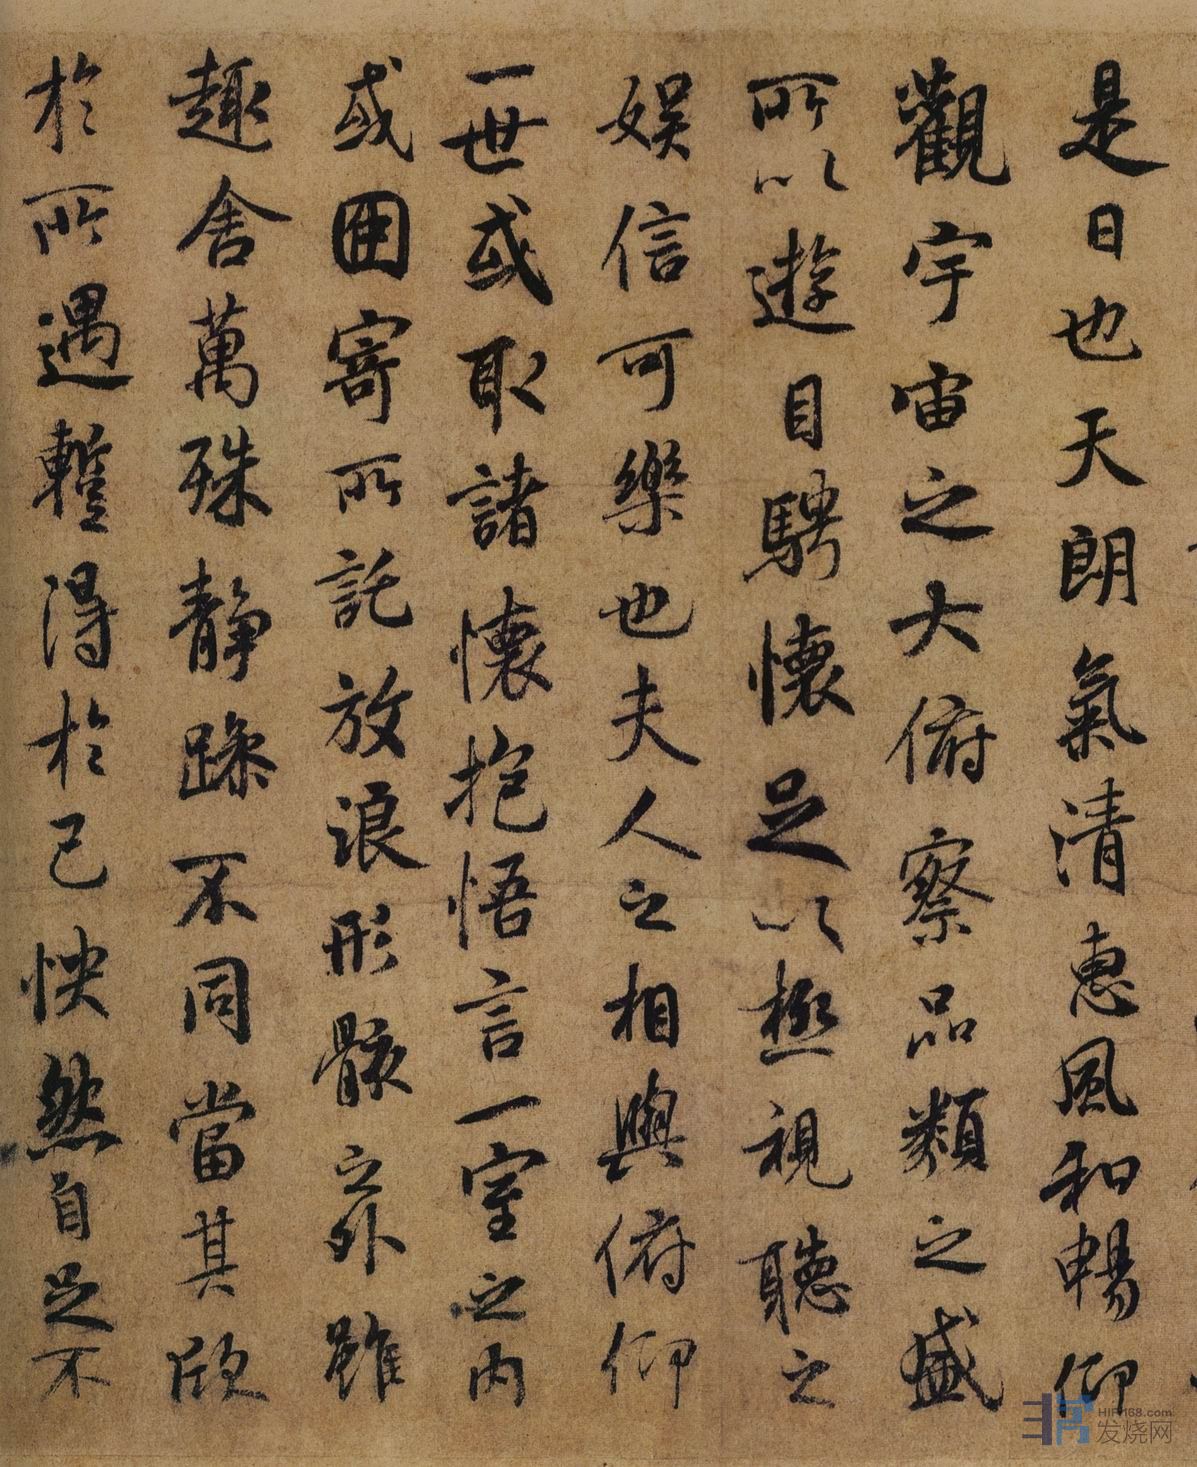 是日也天朗氣清惠風和暢仰
觀宇宙之大俯察品類之盛
所以遊目騁懷足以極視聽之
娛信可樂也夫人之相與俯仰
一世或取諸懷抱悟言一室之內
或因寄所託放浪形骸之外雖
趣舍萬殊靜躁不同當其欣
於所遇暫得於己怏然自足不
HIFI168.com
发烧网